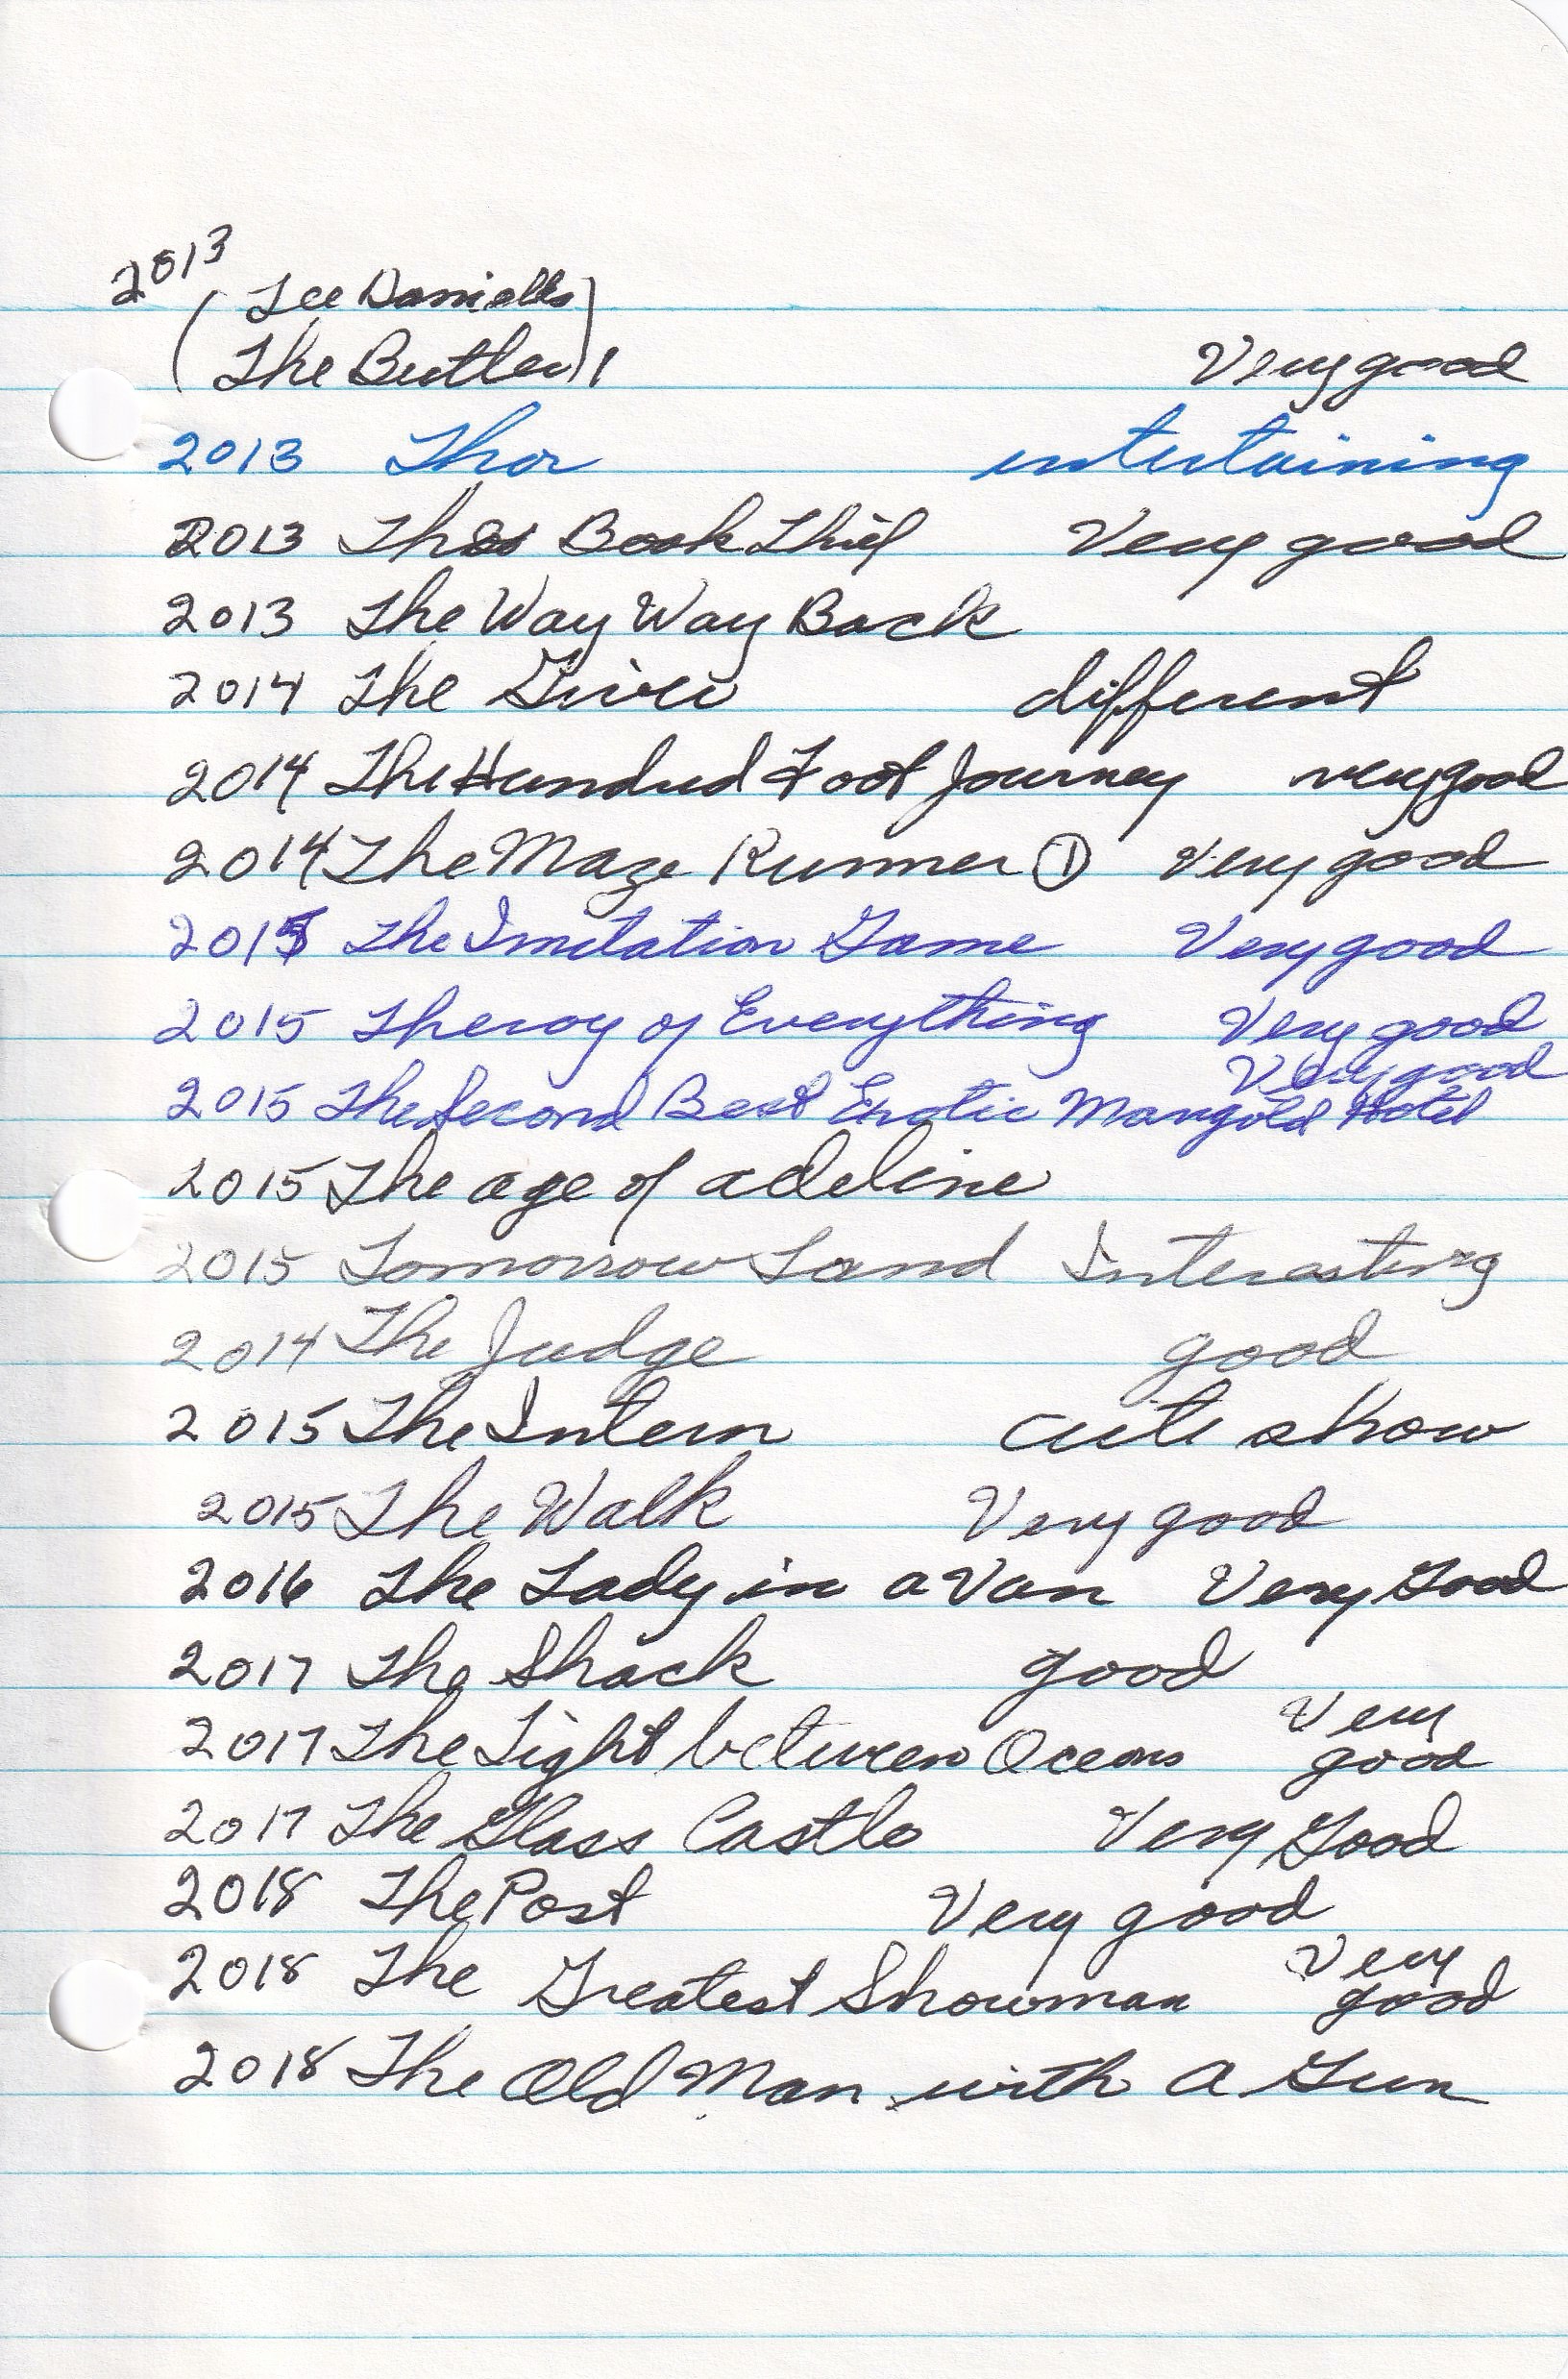 2013
(Lee Daniells)
(The Butler)1 Very good
2013 Thor entertaining
2013 The Book Thief Very good
2013 The Way Way Back
2014 The Giver different
2014 The Hundred Foot Journey very good
2014 The Maze Runner ① Very good
2015 The Imitation Game Very good
2015 Theroy of Everything Very good
Very good
2015 The Second Best Exotic Marigold Hotel
2015 The age of adeline
2015 Tomorrow Land Interesting
2014 The Judge good
2015 The Intern cute show
2015 The Walk Very good
2016 The Lady in a Van Very Good
2017 The Shack good
2017 The Light between Oceans Very
good
2017 The Glass Castle Very Good
2018 The Post Very good
2018 The Greatest Showman Very
good
2018 The Old Man with a Gun